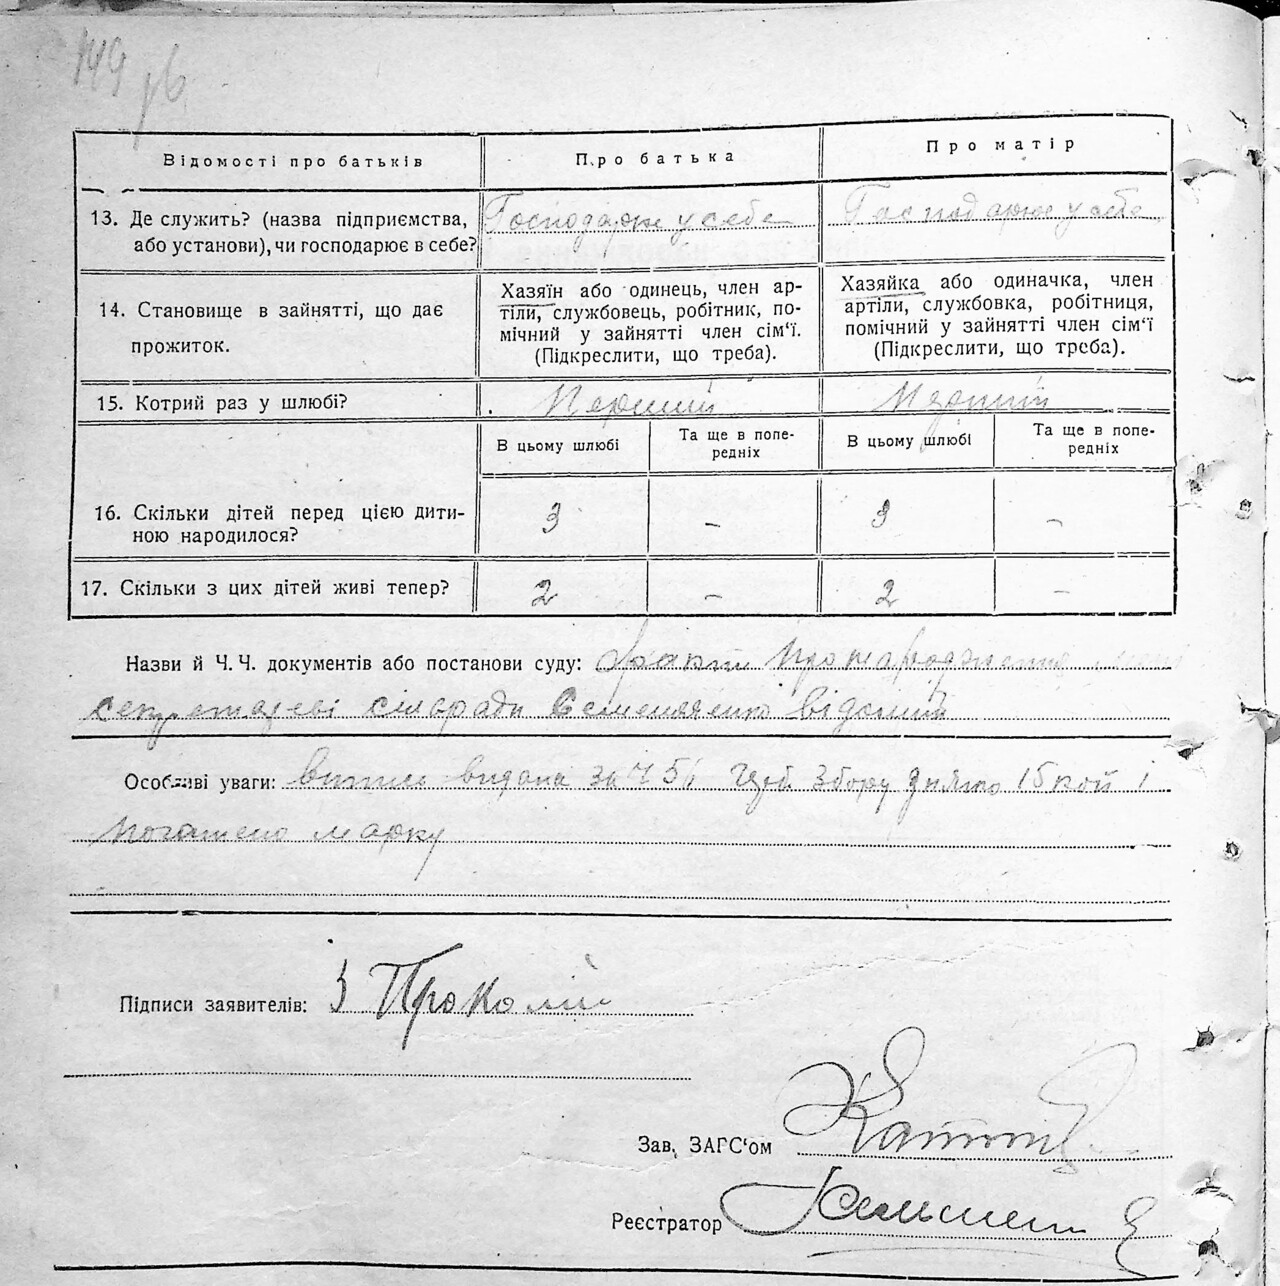 149
Відомості про батьків
Про батька
Про матір
13. Де служить? (назва підприємства, або установи), чи господарює в себе?
Господарює у себе
Господарює у себе
14. Становище в зайнятті, що дає прожиток.
Хазяїн або одинець, член ар-
тіли, службовець, робітник, по-
мічний у зайнятті член сім‘ї.
(Підкреслити, що треба).
Хазяйка або одиначка, член
артіли, службовка, робітниця,
помічний у зайнятті член сім‘ї
(Підкреслити, що треба).
15. Котрий раз у шлюбі?
Перший
Перший
В цьому шлюбі
Та ще в попе-
редніх
В цьому шлюбі
Та ще в попе-
редніх
16. Скільки дітей перед цією дити-
ною народилося?
3 - 3 -
17. Скільки з цих дітей живі тепер?
2 - 2 -
Назви й Ч. Ч. документів або постанови суду: Факт про народження
секретареві сільради відомий
Особливі уваги: випис видана за Ч 51 збору 15 коп і
погашено марку
Підписи заявителів: Прокопій
Зав. ЗАГС‘ом
Реєстратор